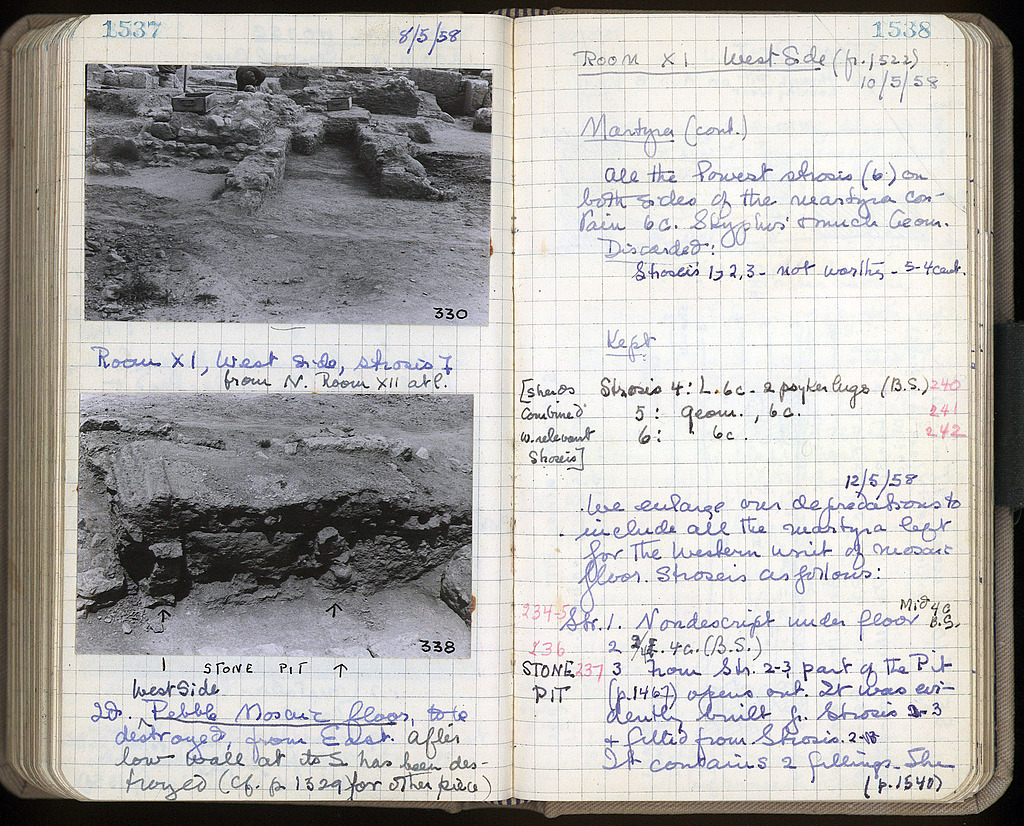 1537
8/5/58
330
Room XI, West Side, strosis 7
from N. Room XII at l.
338
STONE PIT
West Side
2d. Pebble Mosaic floor, to be
destroyed, from East. After
low wall at its S has been des-
troyed (Cf. p. 1329 for other piece)
1538
Room XI West Side (fr. 1522)
10/5/58
Martyra (cont.)
All the lowest strosis (6) on
both sides of the martyra con-
tain 6c. Skyphoi & much Geom.
Discarded:
Stroseis 1, 2, 3 - not worthy - 5-4 cent.
Kept
[sherds Strosis 4: L. 6c. 2 psykter lugs (B.S.) 240
combined 5: geom., 6c. 241
w. relevant 6: 6c. 242
Stroseis]
12/5/58
We enlarge our depredations to
include all the martyra left
for the Western unit of mosaic
floor. Stroseis as follows:
234-5 Str. 1. Nondescript under floor Mid 4c B.S.
236 2 4c. (B.S.)
STONE 237 3 From Str. 2-3 part of the Pit
PIT (p. 1467) opens out. It was evi-
dently built fr. Strosis 3
& filled from Strosis 2-
It contains 2 fillings. The
(p. 1540)